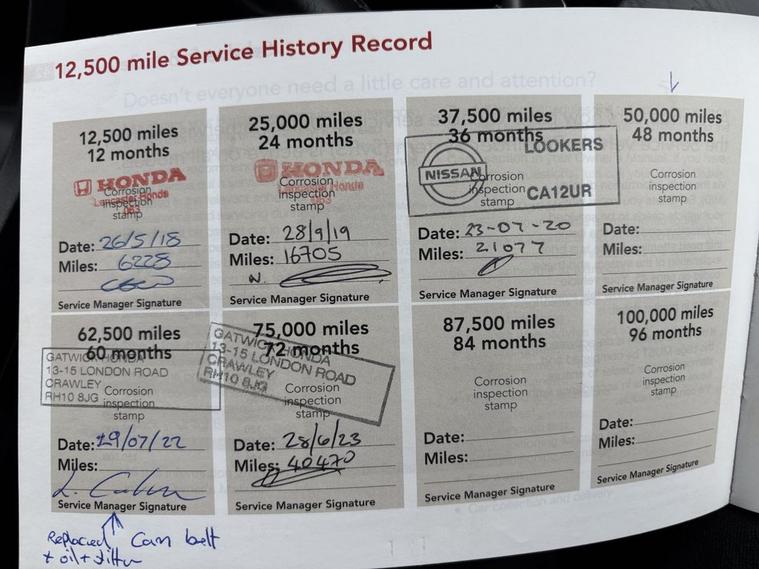 12,500 mile Service History Record
12,500 miles
12 months
HONDA
Corrosion
Lancaster Honda
inspection
stamp
Date: 26/5/18
Miles: 6228
Service Manager Signature
25,000 miles
24 months
HONDA
Corrosion
Lancaster Honda
inspection
stamp
Date: 28/9/19
Miles: 16705
Service Manager Signature
37,500 miles
36 months
LOOKERS
NISSAN
Corrosion
inspection
CA12UR
stamp
Date: 23-07-20
Miles: 21077
Service Manager Signature
50,000 miles
48 months
Corrosion
inspection
stamp
Date:
Miles:
Service Manager Signature
62,500 miles
60 months
GATWICK HONDA
13-15 LONDON ROAD
CRAWLEY
RH10 8JG
Corrosion
inspection
stamp
Date: 19/07/22
Miles:
Service Manager Signature
Replaced Cam belt
+ oil + filter
75,000 miles
72 months
GATWICK HONDA
13-15 LONDON ROAD
CRAWLEY
RH10 8JG
Corrosion
inspection
stamp
Date: 28/6/23
Miles: 40470
Service Manager Signature
87,500 miles
84 months
Corrosion
inspection
stamp
Date:
Miles:
Service Manager Signature
100,000 miles
96 months
Corrosion
inspection
stamp
Date:
Miles:
Service Manager Signature